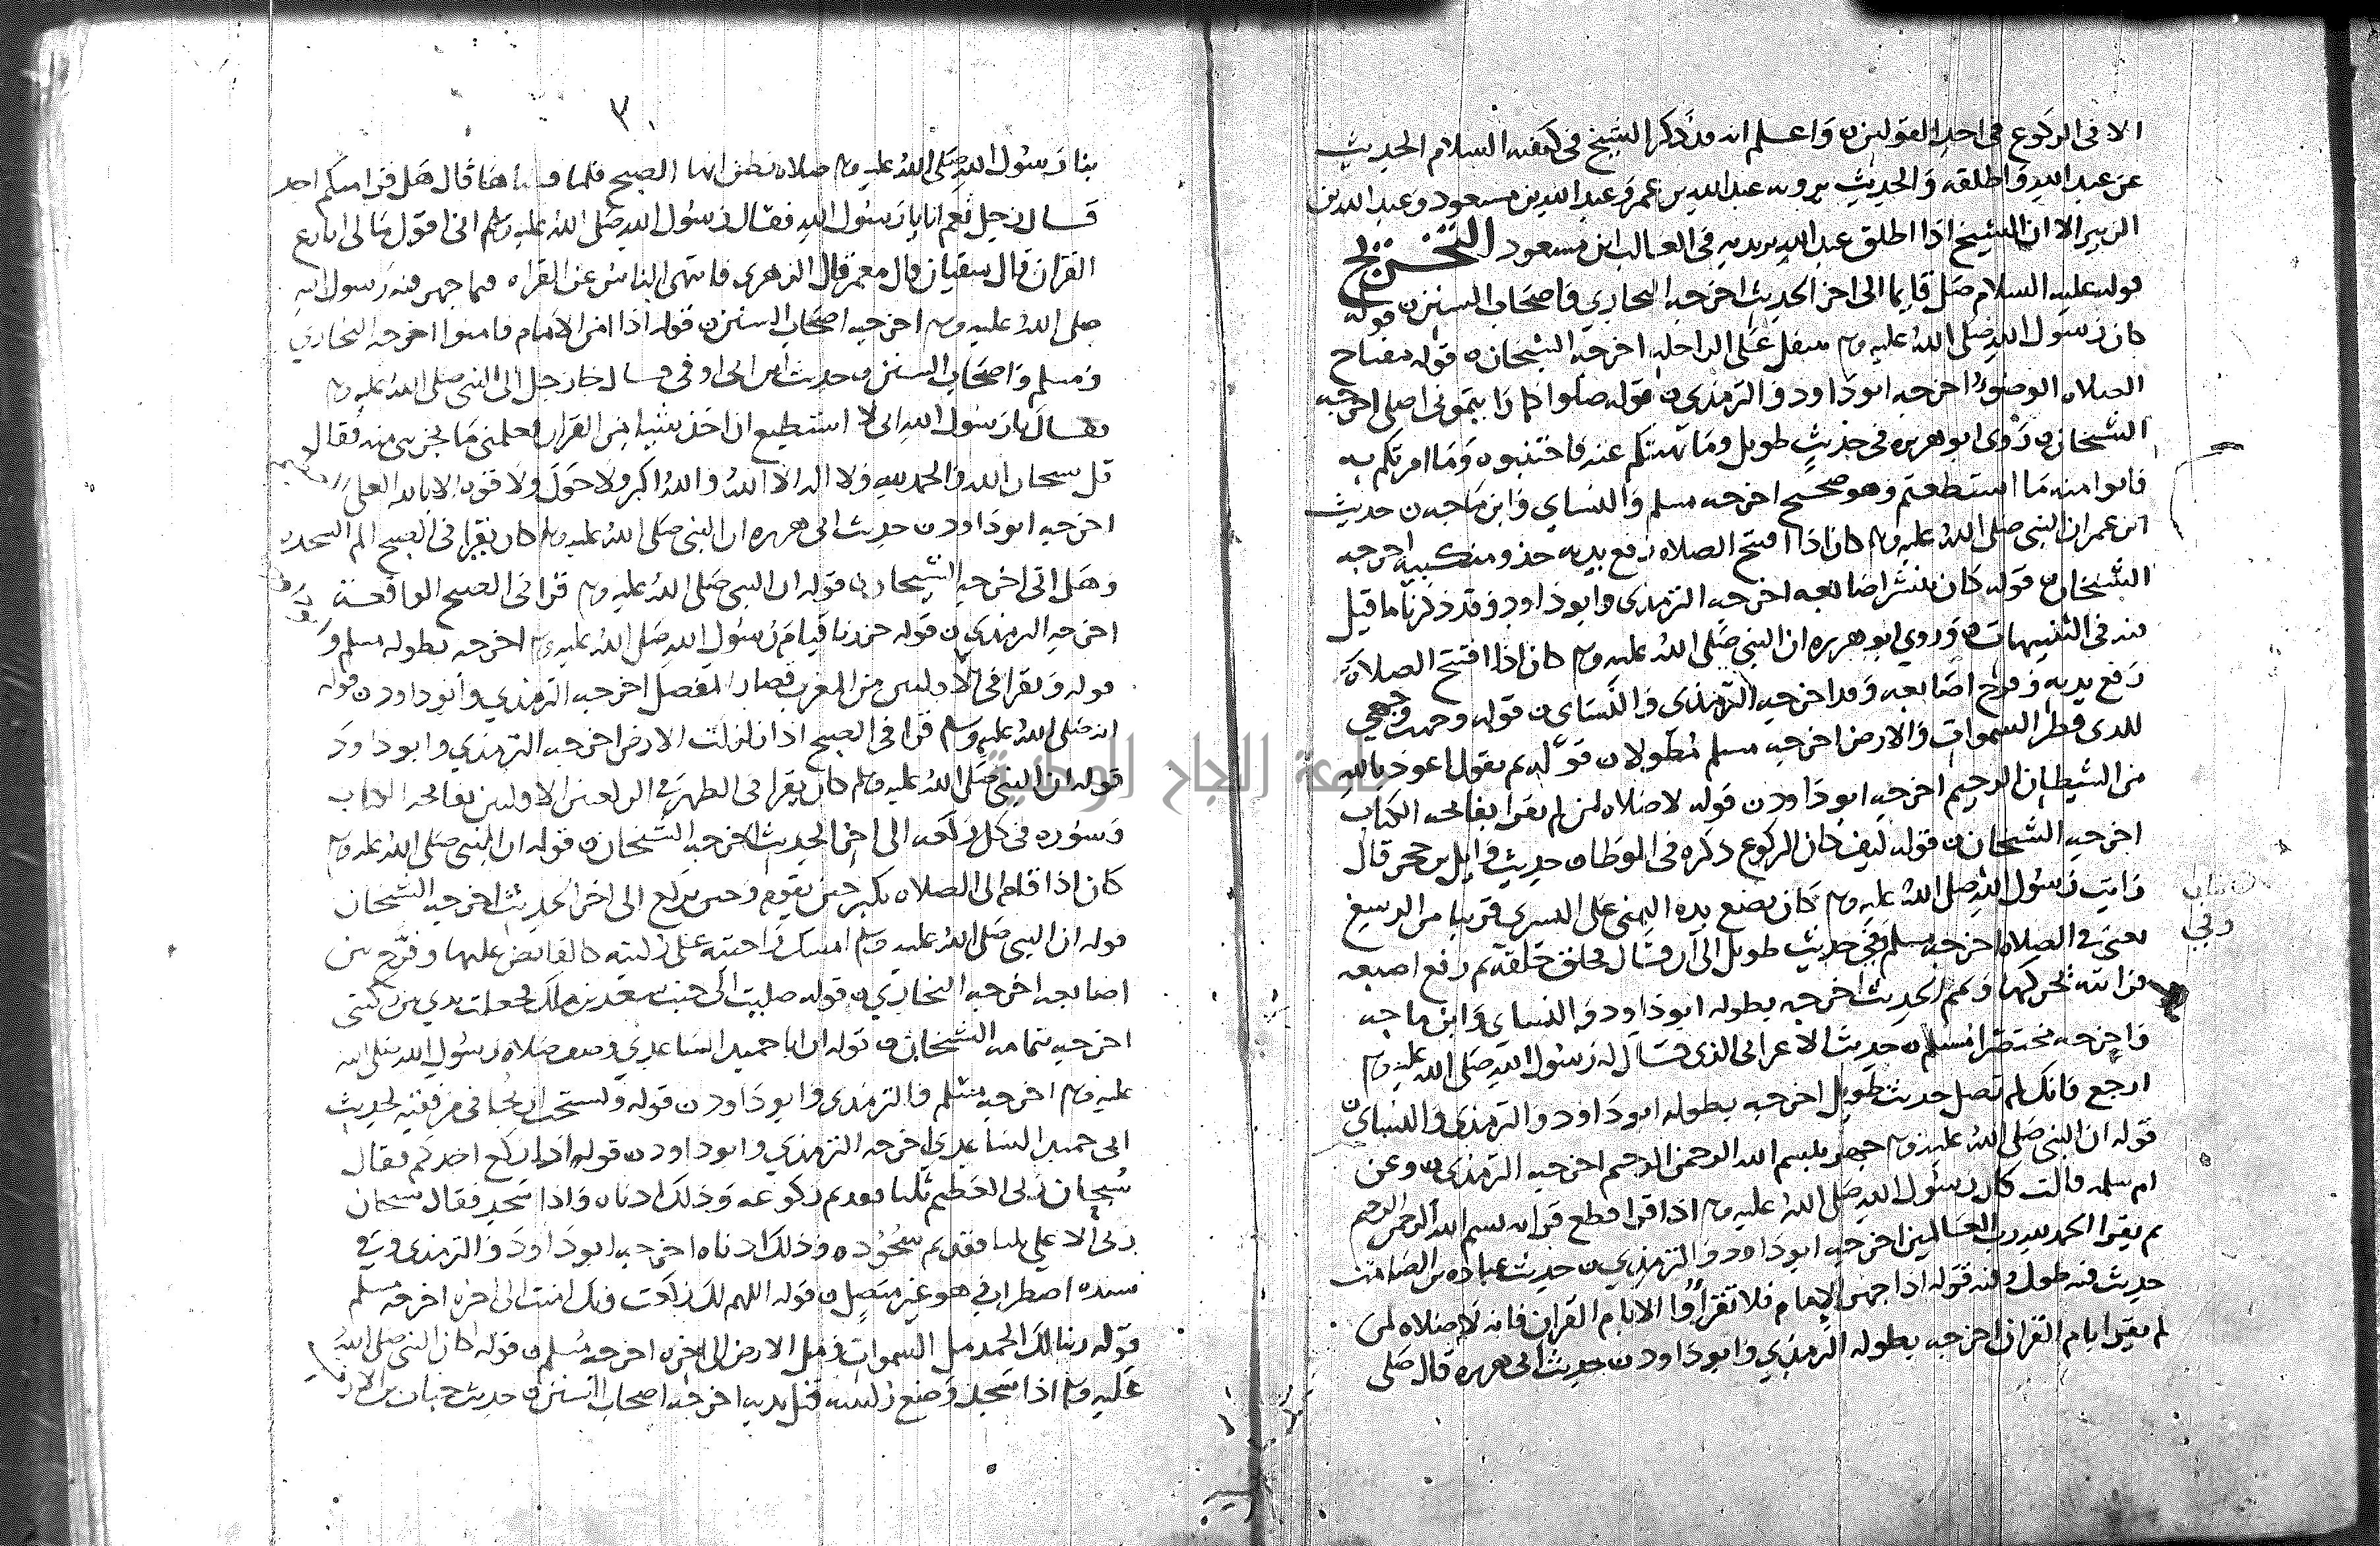 الا في الركوع في احد القولين ن واعلم انه قد ذكر الشيخ في كيفية السلام الحديث
عن عبد الله واطلقه والحديث يرويه عبد الله بن عمر وعبد الله بن مسعود وعبد الله بن
الزبير الا ان الشيخ اذا اطلق عبد الله يريد به في الغالب ابن مسعود التخريج
قوله عليه السلام صل قايما الى اخر الحديث اخرجه البخاري واصحاب السنن ن قوله
كان رسول الله صلى الله عليه وسلم يتنفل على الراحلة اخرجه الشيخان ن قوله مفتاح
الصلاه الوضوء اخرجه ابو داود والترمذي ن قوله صلوا كما رايتموني اصلي اخرجه
الشيخان ن روى ابو هريره في حديث طويل وما نهيتكم عنه فاجتنبوه وما امرتكم به
فاتوا منه ما استطعتم وهو صحيح اخرجه مسلم والنساي وابن ماجه ن حديث
ابن عمر ان النبي صلى الله عليه وسلم كان اذا افتتح الصلاه رفع يديه حذو منكبيه اخرجه
الشيخان ن قوله كان ينشر اصابعه اخرجه الترمذي وابو داود وقد ذكرنا ما قيل
فيه في التنبيهات ن وروي ابو هريره ان النبي صلى الله عليه وسلم كان اذا افتتح الصلاة
رفع يديه وفرج اصابعه وقد اخرجه الترمذي والنساي ن قوله وجهت وجهي
للذي فطر السموات والارض اخرجه مسلم مطولا ن قوله ثم يقول اعوذ بالله
من الشيطان الرجيم اخرجه ابو داود ن قوله لا صلاه لمن لم يقرا بفاتحه الكتاب
اخرجه الشيخان ن قوله كيف كان الركوع ذكره في الموطا ن حديث وايل بن حجر قال
رايت رسول الله صلى الله عليه وسلم كان يضع يده اليمنى على اليسرى قريبا من الرسغ
يعني في الصلاه اخرجه مسلم في حديث طويل الى ان قال فحلق حلقة ثم رفع اصبعه
فرايته يحركها وتمم الحديث اخرجه بطوله ابو داود والنساي وابن ماجه
واخرجه مختصرا مسلم ن حديث الاعرابي الذي قال له رسول الله صلى الله عليه وسلم
ارجع فانك لم تصل حديث طويل اخرجه بطوله ابو داود والترمذي والنساي ن
قوله ان النبي صلى الله عليه وسلم جهر ببسم الله الرحمن الرحيم اخرجه الترمذي ن وعن
ام سلمه قالت كان رسول الله صلى الله عليه وسلم اذا قرا قطع قراته بسم الله الرحمن الرحيم
ثم يقرا الحمد لله رب العالمين اخرجه ابو داود والترمذي ن حديث عباده بن الصامت
حديث فيه طول وفيه قوله اذا جهر الامام فلا تقراوا الا بام القران فانه لا صلاه لمن
لم يقرا بام القران اخرجه بطوله الترمذي وابو داود ن حديث ابي هريره قال صلى
٣
بنا رسول الله صلى الله عليه وسلم صلاه نظن انها الصبح فلما قضاها قال هل قرا منكم احد
قال رجل نعم انا يا رسول الله فقال رسول الله صلى الله عليه وسلم اني اقول ما لي انازع
القران قال سفيان قال معمر قال الزهري فانتهى الناس عن القراه فيما جهر فيه رسول الله
صلى الله عليه وسلم اخرجه اصحاب السنن ن قوله اذا امن الامام فامنوا اخرجه البخاري
ومسلم واصحاب السنن ن حديث ابن ابي اوفى قال جا رجل الى النبي صلى الله عليه وسلم
فقال يا رسول الله اني لا استطيع ان اخذ شيا من القران فعلمني ما يجزيني منه فقال
قل سبحان الله والحمد لله ولا اله الا الله والله اكبر ولا حول ولا قوه الا بالله العلي العظيم
اخرجه ابو داود ن حديث ابي هريره ان النبي صلى الله عليه وسلم كان يقرا في الصبح الم السجده
وهل اتى اخرجه الشيخان ن قوله ان النبي صلى الله عليه وسلم قرا في الصبح الواقعة
اخرجه الترمذي ن قوله حزرنا قيام رسول الله صلى الله عليه وسلم اخرجه بطوله مسلم و
قوله ويقرا في الاوليين من المغرب قصار المفصل اخرجه الترمذي وابو داود ن قوله
انه صلى الله عليه وسلم قرا في الصبح اذا زلزلت الارض اخرجه الترمذي وابو داود
قوله ان النبي صلى الله عليه وسلم كان يقرا في الظهر في الركعتين الاوليين بفاتحه الكتاب
وسوره في كل ركعه الى اخر الحديث اخرجه الشيخان ن قوله ان النبي صلى الله عليه وسلم
كان اذا قام الى الصلاه يكبر حين يقوم وحين يركع الى اخر الحديث اخرجه الشيخان
قوله ان النبي صلى الله عليه وسلم امسك راحتيه على ركبتيه كالقابض عليهما وفرج بين
اصابعه اخرجه البخاري ن قوله صليت الى جنب سعد بن مالك فجعلت يدي بين ركبتي
اخرجه بتمامه الشيخان ن قوله ان ابا حميد الساعدي وصف صلاه رسول الله صلى الله
عليه وسلم اخرجه مسلم والترمذي وابو داود ن قوله ويستحب ان يجافي مرفقيه لحديث
ابي حميد الساعدي اخرجه الترمذي وابو داود ن قوله اذا ركع احدكم فقال
سبحان ربي العظيم ثلثا فقد تم ركوعه وذلك ادناه واذا سجد فقال سبحان
ربي الاعلى ثلثا فقد تم سجوده وذلك ادناه اخرجه ابو داود والترمذي وفي
سنده اضطراب هو غير متصل ن قوله اللهم لك ركعت وبك امنت الى اخره اخرجه مسلم
قوله ربنا لك الحمد مل السموات ومل الارض الى اخره اخرجه مسلم ن قوله كان النبي صلى الله
عليه وسلم اذا سجد وضع ركبتيه قبل يديه اخرجه اصحاب السنن ن حديث خباب بن الارت
جامعة النجاح الوطنية